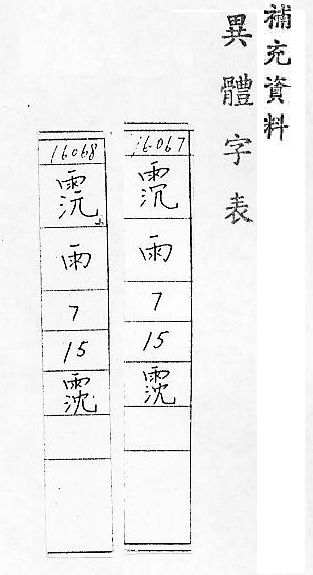 補充資料
異體字表
16067
雨
7
15
霃
16068
雨
7
15
霃